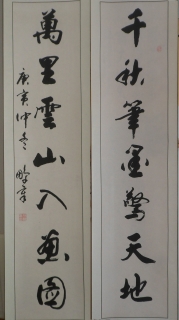 千秋筆墨驚天地
萬里雲山入畫圖
庚寅仲冬